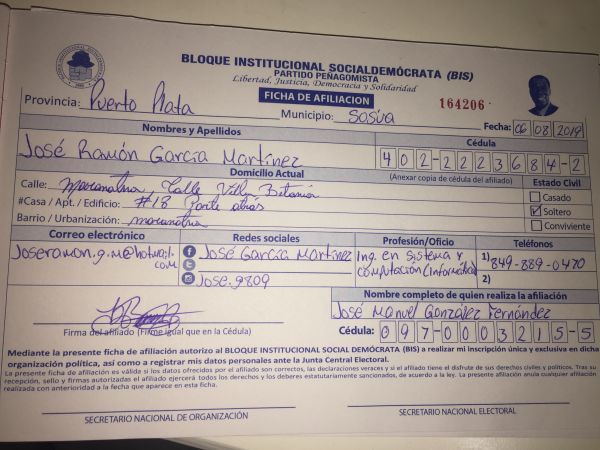 BLOQUE INSTITUCIONAL SOCIALDEMÓCRATA (BIS)
PARTIDO PEÑAGOMISTA
Libertad, Justicia, Democracia y Solidaridad
FICHA DE AFILIACION
164206
Provincia: Puerto Plata Municipio: Sosua Fecha: 06 08 2019
Nombres y Apellidos
Cédula
José Ramón García Martínez
402-2223684-2
Domicilio Actual
(Anexar copia de cédula del afiliado)
Estado Civil
Calle: Maranatha, Calle Villa Betania
Casado
#Casa / Apt. / Edificio: #18 Parte atrás
Soltero
Barrio / Urbanización: maranatha
Conviviente
Correo electrónico
Redes sociales
Profesión/Oficio
Teléfonos
Joseramon.g.m@hotmail.com
José García Martínez
Jose.9809
Ing. en sistema y computación (informática)
1) 849-889-0470
2)
Nombre completo de quien realiza la afiliación
José Manuel González Fernández
Firma del afiliado (Firme igual que en la Cédula)
Cédula: 097-0003215-5
Mediante la presente ficha de afiliación autorizo al BLOQUE INSTITUCIONAL SOCIAL DEMÓCRATA (BIS) a realizar mi inscripción única y exclusiva en dicha
organización política, así como a registrar mis datos personales ante la Junta Central Electoral.
La presente ficha de afiliación es válida si los datos ofrecidos por el afiliado son correctos, las declaraciones veraces y si el afiliado tiene el disfrute de sus derechos civiles y políticos. Tras su
recepción, sello y firmas autorizadas el afiliado ejercerá todos los derechos y los deberes estatutariamente sancionados, de acuerdo a la ley. La presente afiliación anula cualquier afiliación
realizada con anterioridad a la fecha que aparece en esta ficha.
SECRETARIO NACIONAL DE ORGANIZACIÓN
SECRETARIO NACIONAL ELECTORAL